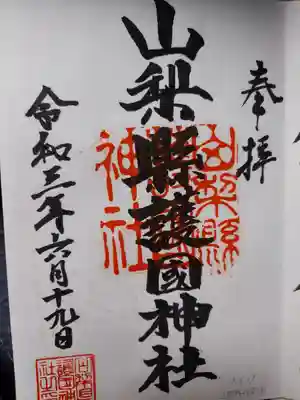 奉拝
山梨縣護國神社
山梨縣
神社
令和三年六月十九日